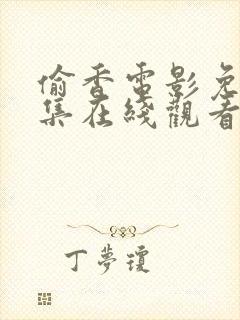 偷香電影免
集在綫觀看
丁夢瓊